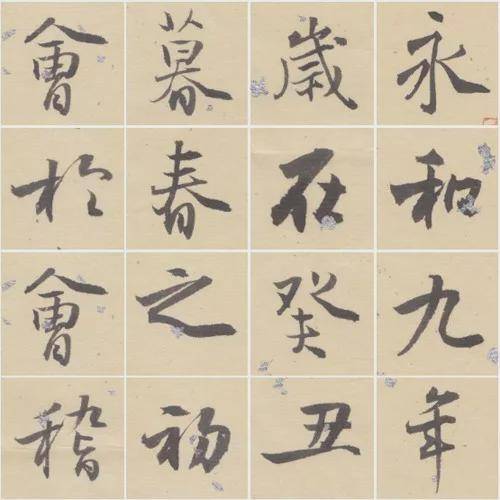 永和九年
歲在癸丑
暮春之初
會於會稽